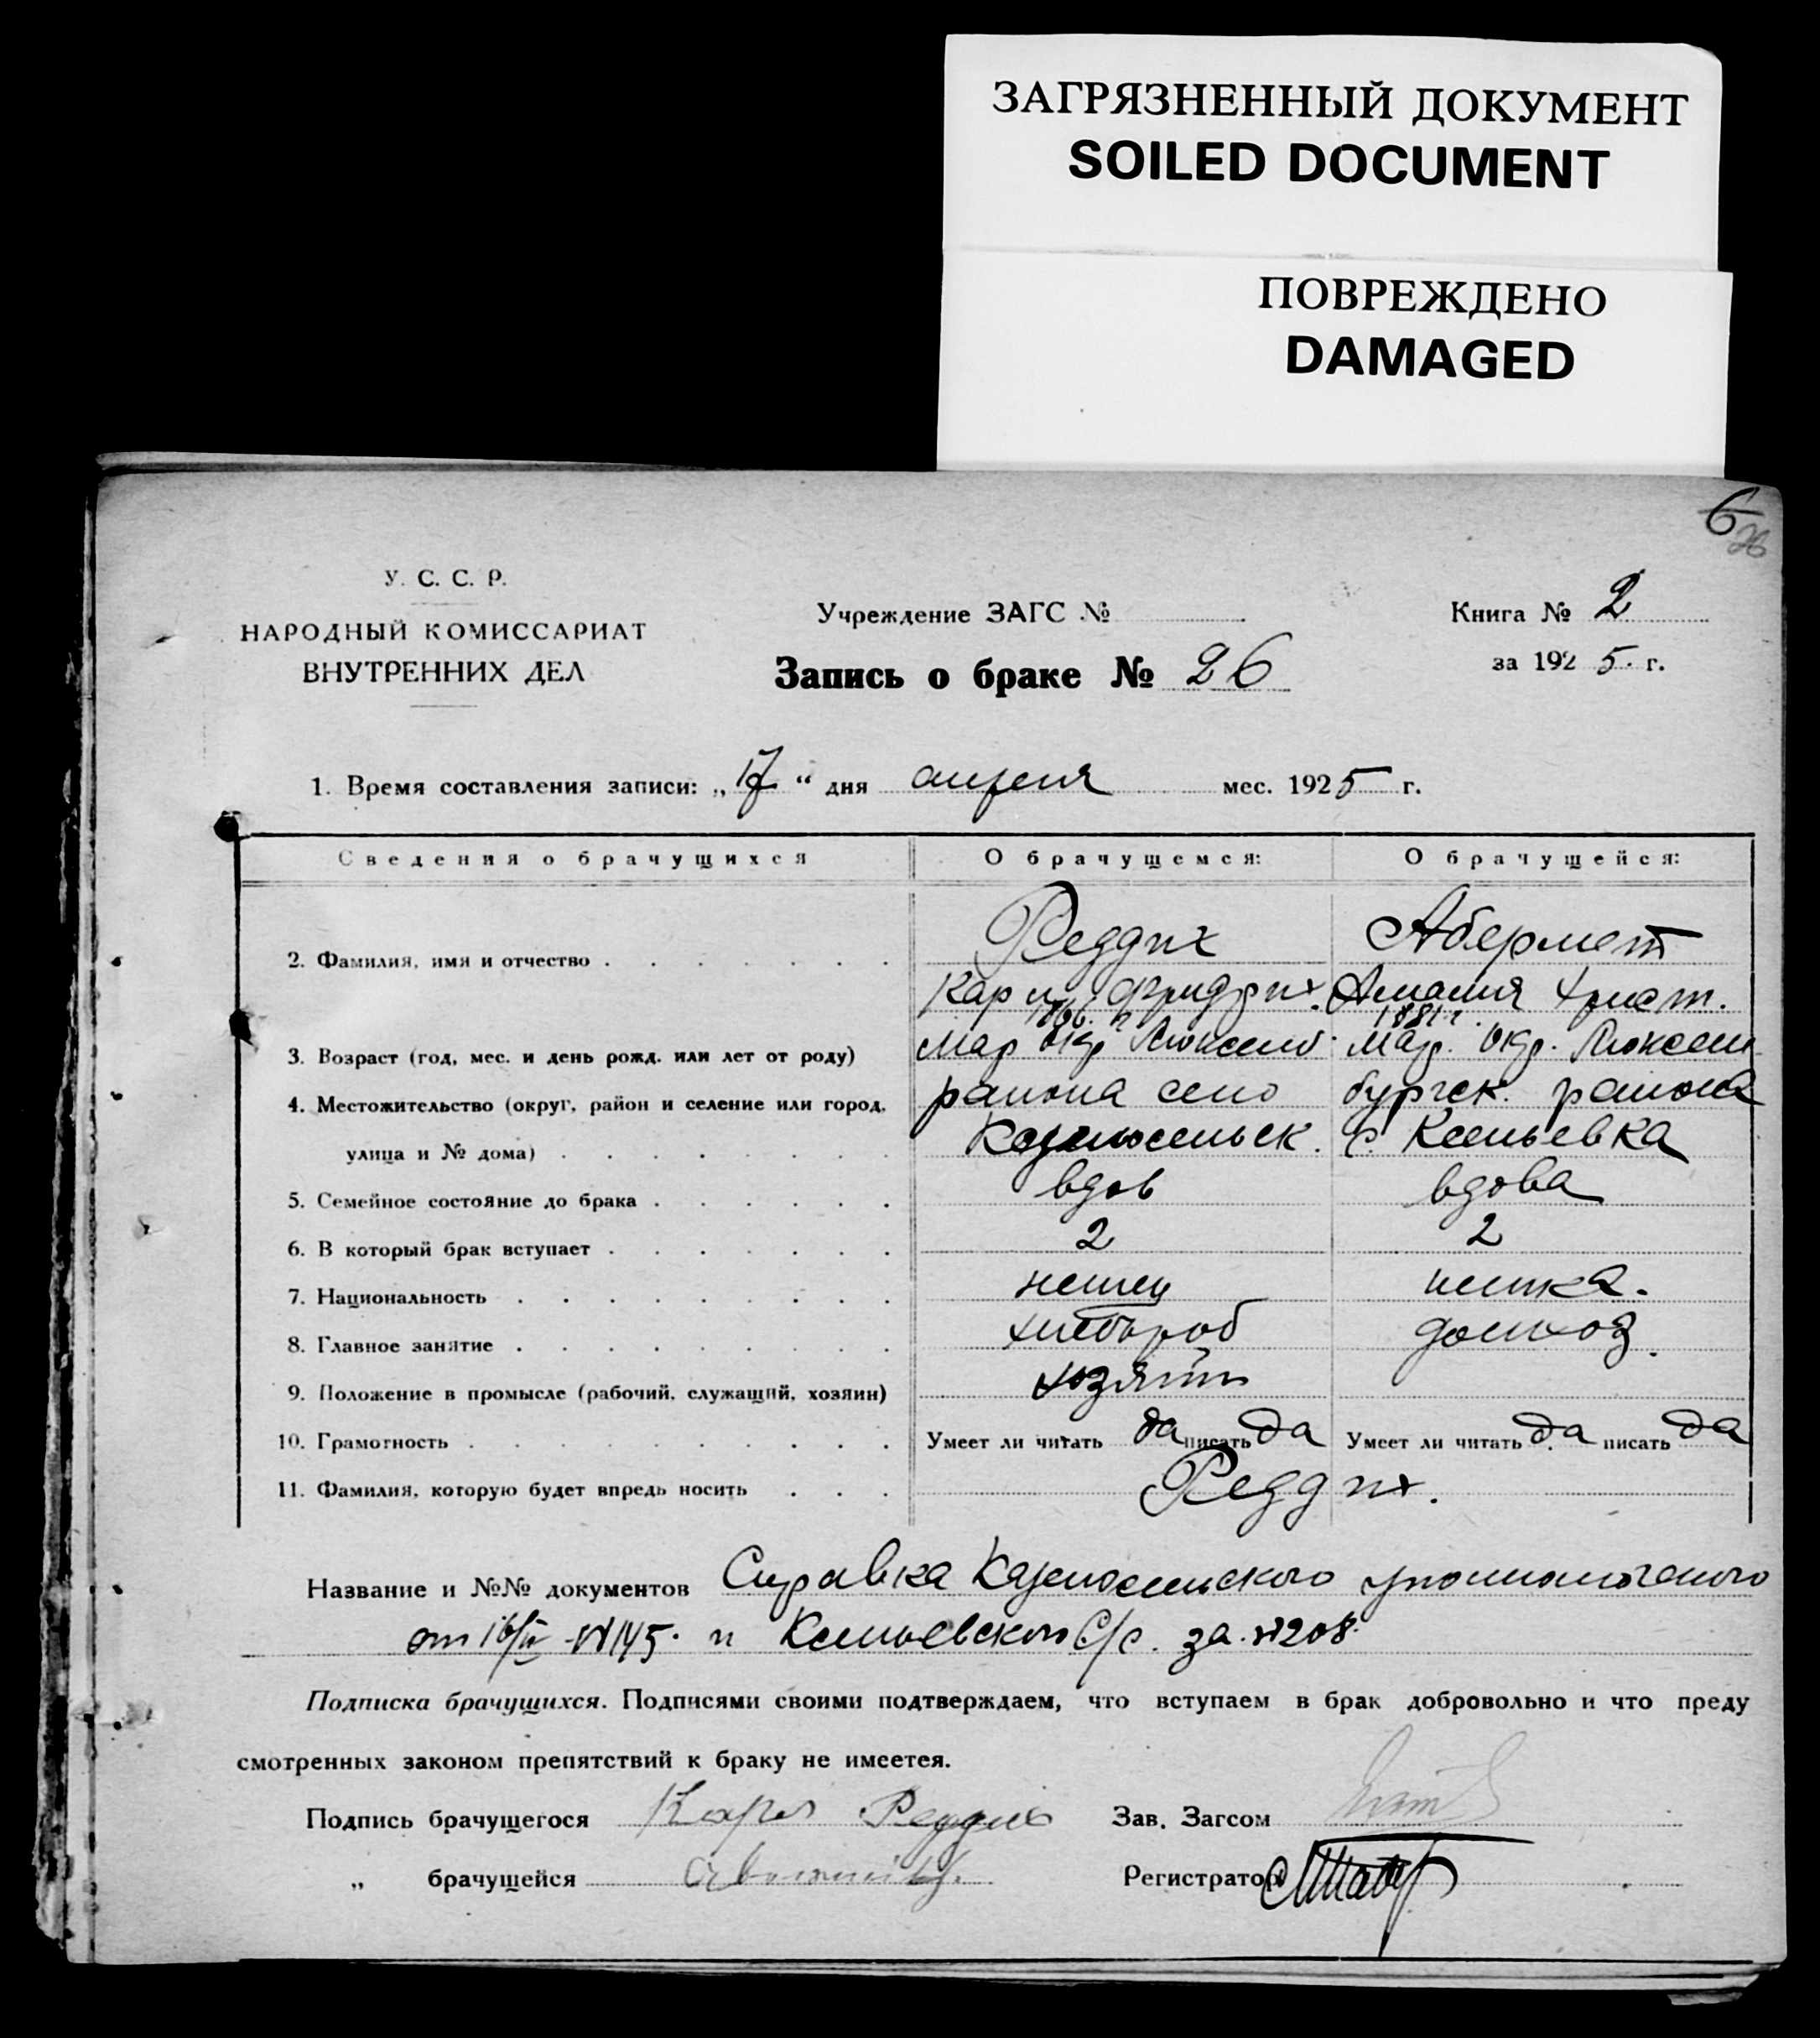 ЗАГРЯЗНЕННЫЙ ДОКУМЕНТ
SOILED DOCUMENT
ПОВРЕЖДЕНО
DAMAGED
6
26
У. С. С. Р.
НАРОДНЫЙ КОМИССАРИАТ
ВНУТРЕННИХ ДЕЛ
Учреждение ЗАГС №
Запись о браке № 26
Книга № 2
за 1925. г.
1. Время составления записи: „17“ дня апреля мес. 1925 г.
Сведения о брачущихся О брачущемся: О брачущейся:
2. Фамилия, имя и отчество Реддих Абермет
Карл Фридрих. Амалия Христ.
3. Возраст (год, мес. и день рожд. или лет от роду) 1866 г 1881 г.
Мар Окр Люксемб. Мар. Окр. Люксем
4. Местожительство (округ, район и селение или город, района село бургск. района
улица и № дома) с. Ксеньевка
5. Семейное состояние до брака вдов вдова
6. В который брак вступает 2 2
7. Национальность немец немка.
8. Главное занятие хлебороб домхоз.
9. Положение в промысле (рабочий, служащий, хозяин) хозяин
10. Грамотность Умеет ли читать да писать да Умеет ли читать да писать да
11. Фамилия, которую будет впредь носить Реддих.
Название и №№ документов Справка уполномоченого
от 16/IV №145. и Ксеньевского С/с. за №208.
Подписка брачущихся. Подписями своими подтверждаем, что вступаем в брак добровольно и что преду
смотренных законом препятствий к браку не имеется.
Подпись брачущегося Карл Реддих Зав. Загсом
„ брачущейся Регистратор